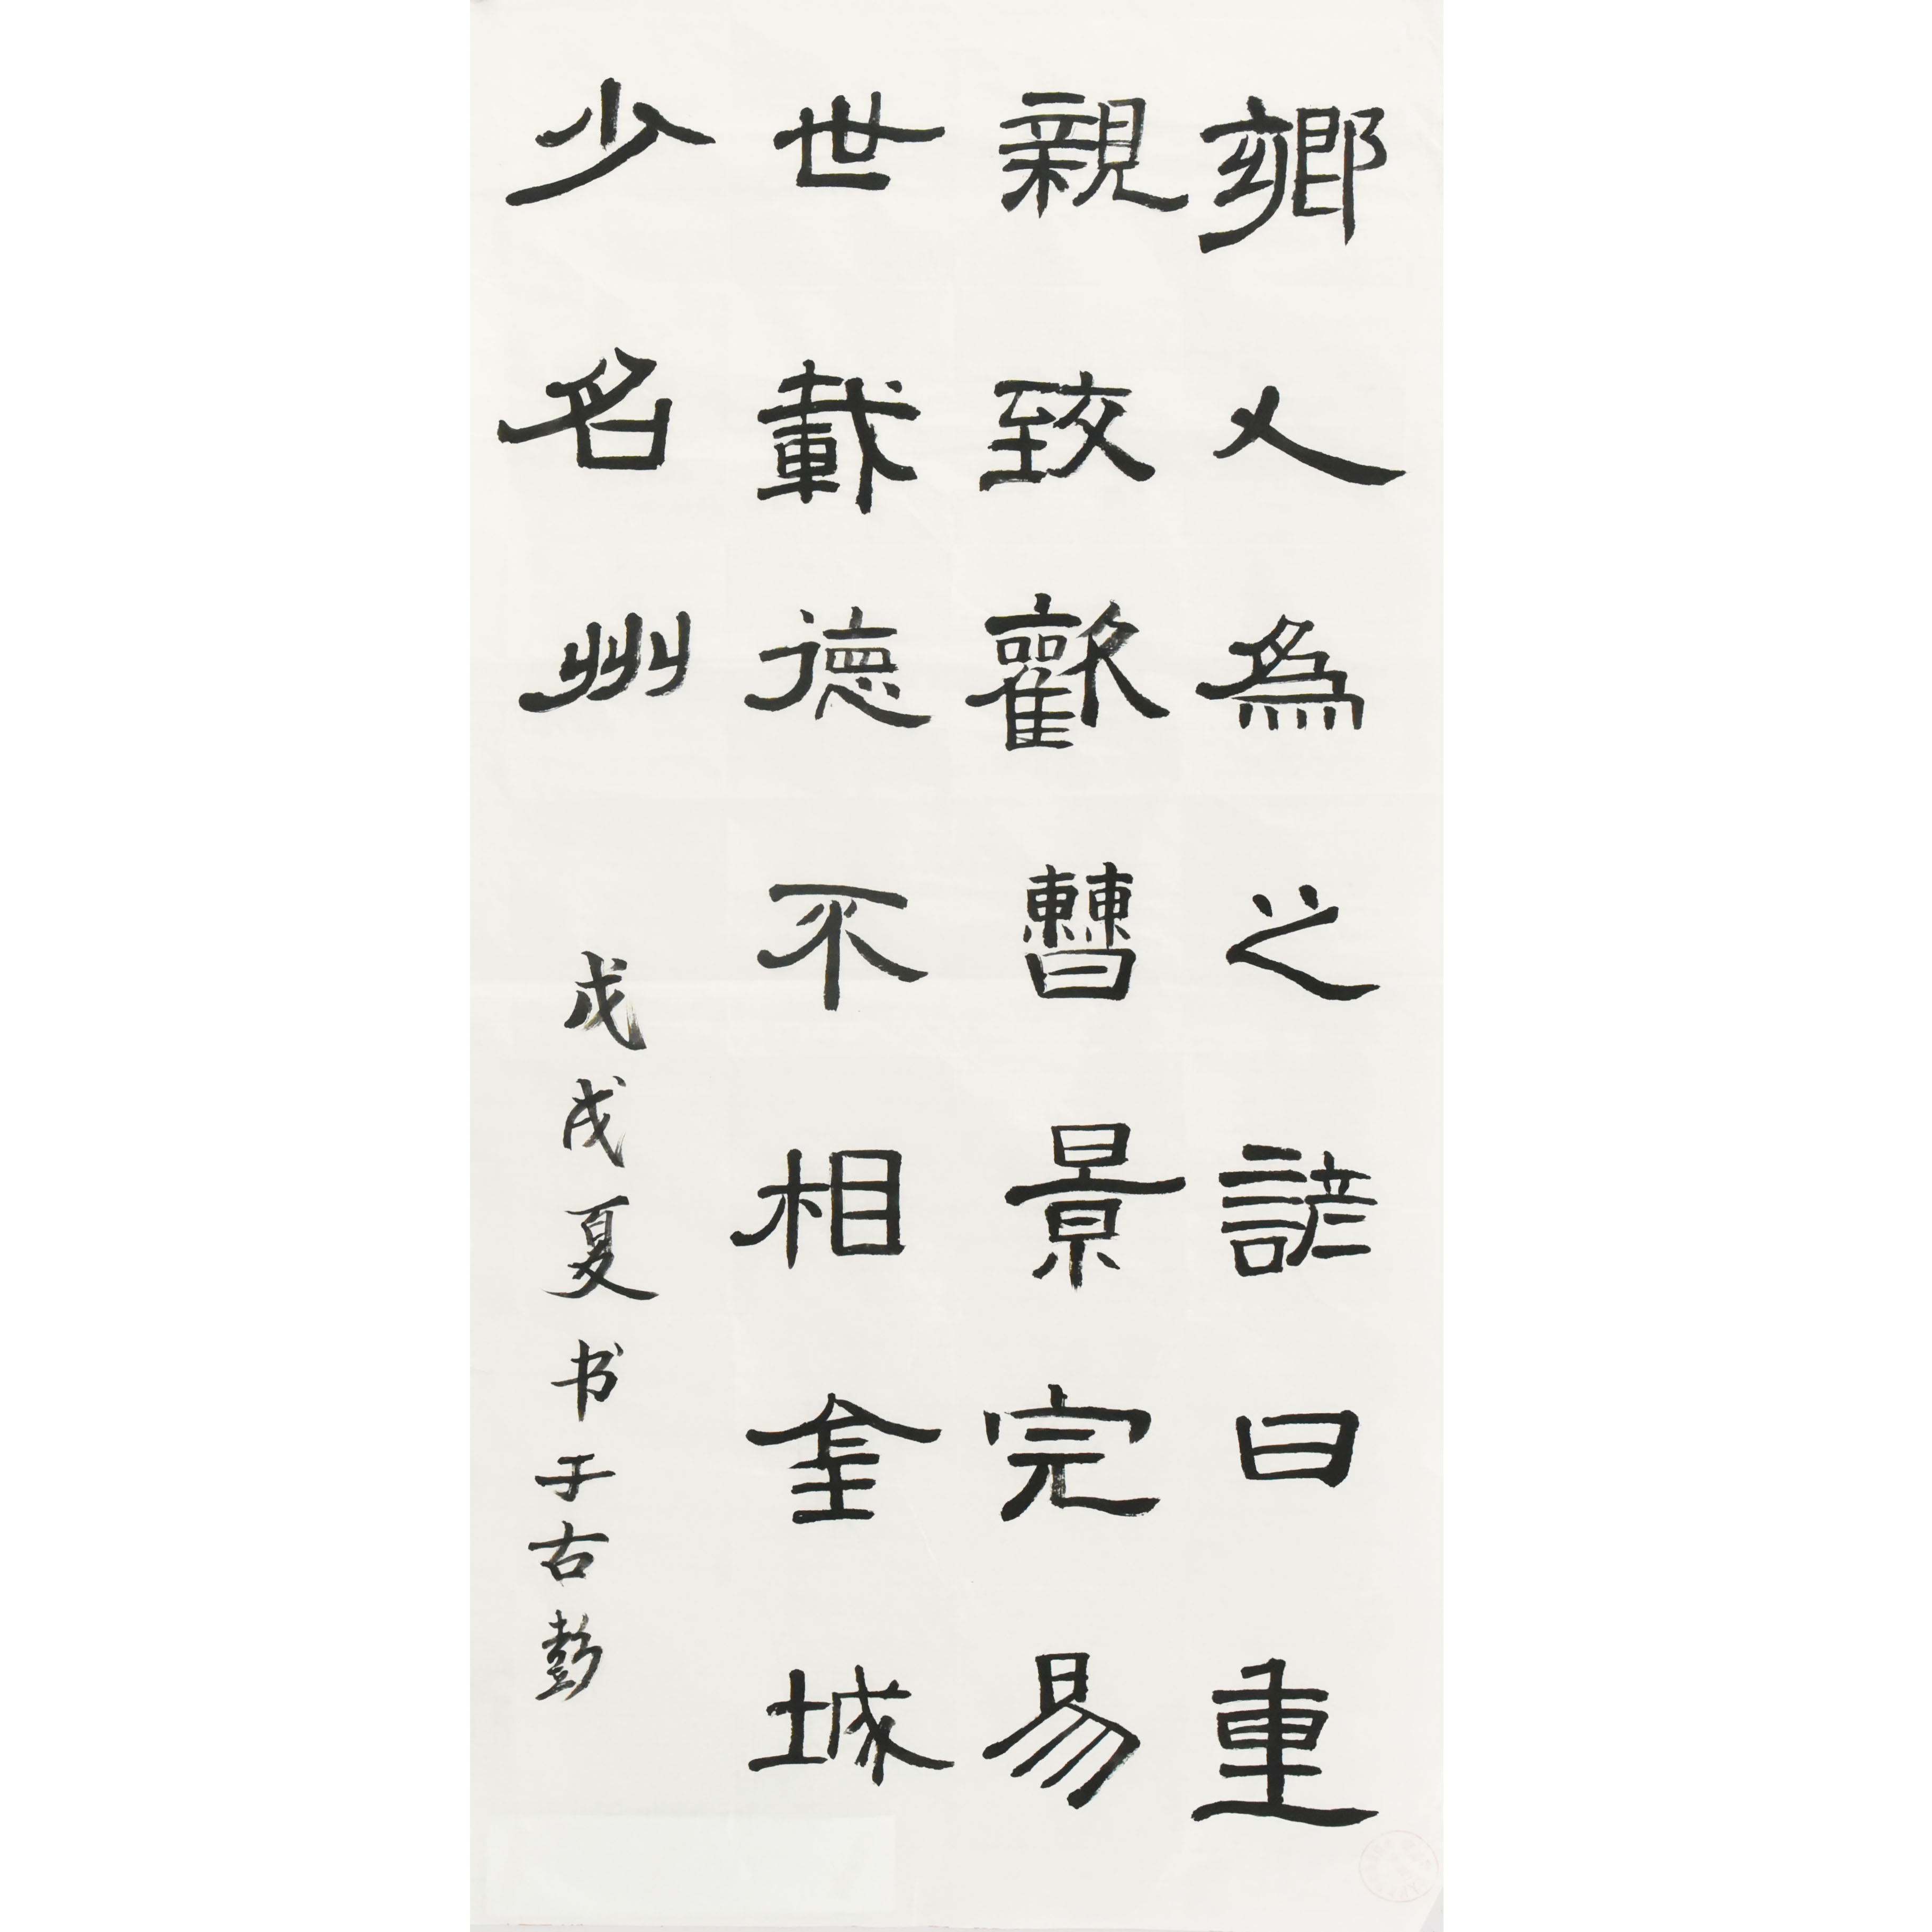 鄉人為之諺曰重
親致歡曹景完易
世載德不相金城
少名州
戊戌夏书于古彭